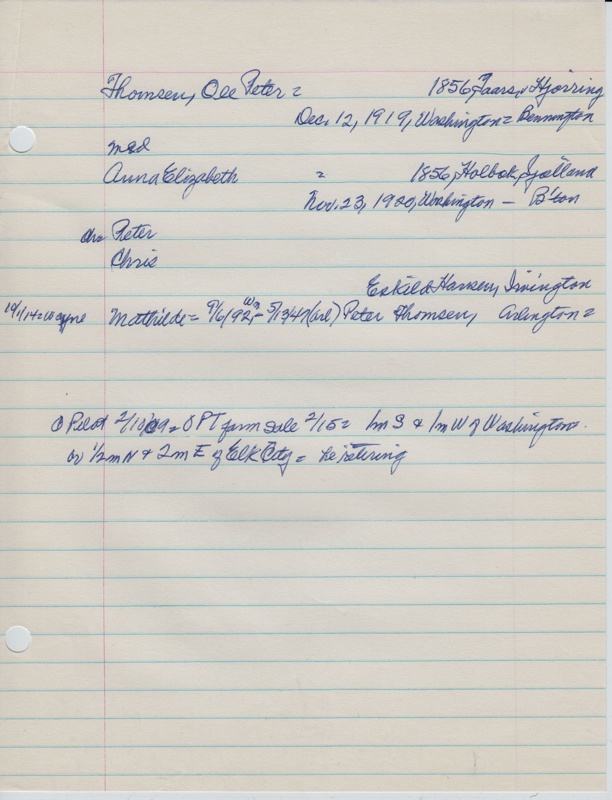 Thomsen, Ole Peter = 1856, Taars, Hjorring
Dec. 12, 1919, Washington = Bennington
med
Anna Elizabeth = 1856, Holbæk, Sjælland
Nov. 23, 1920, Washington — B'ton
ch = Peter
Chris
Eskild Hansen, Irvington
10/1/14 = Wayne Mathilde = 9/6/92, Wn - 5/13/47 (Arl) Peter Thomsen, Arlington =
Pilot 2/10/09 = OPT farm sale 2/15 = 1m S & 1m W of Washington.
or 1/2 m N & 2 m E of Elk City = he retiring